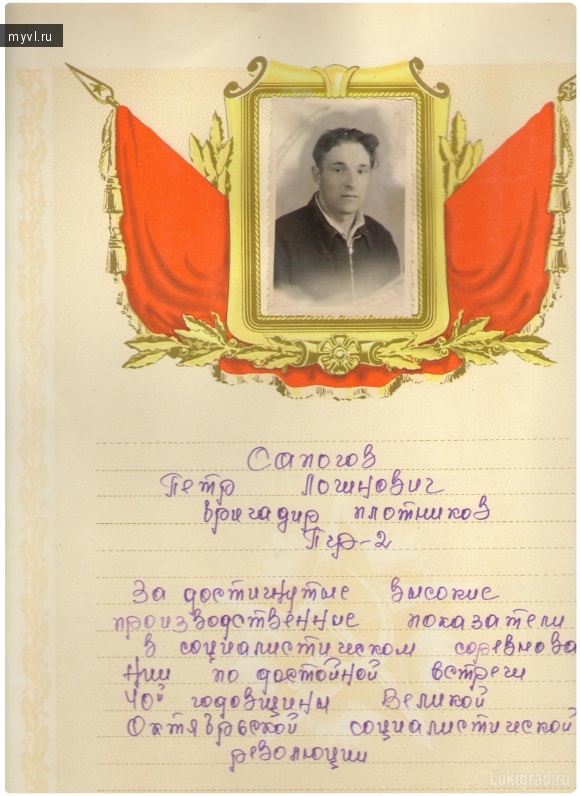 myvl.ru
Сапогов
Петр Логинович
бригадир плотников
Пчр-2
За достигнутые высокие
производственные показатели
в социалистическом соревнова
нии по достойной встречи
40й годовщины Великой
Октябрьской социалистической
революции
Lukigrad.ru